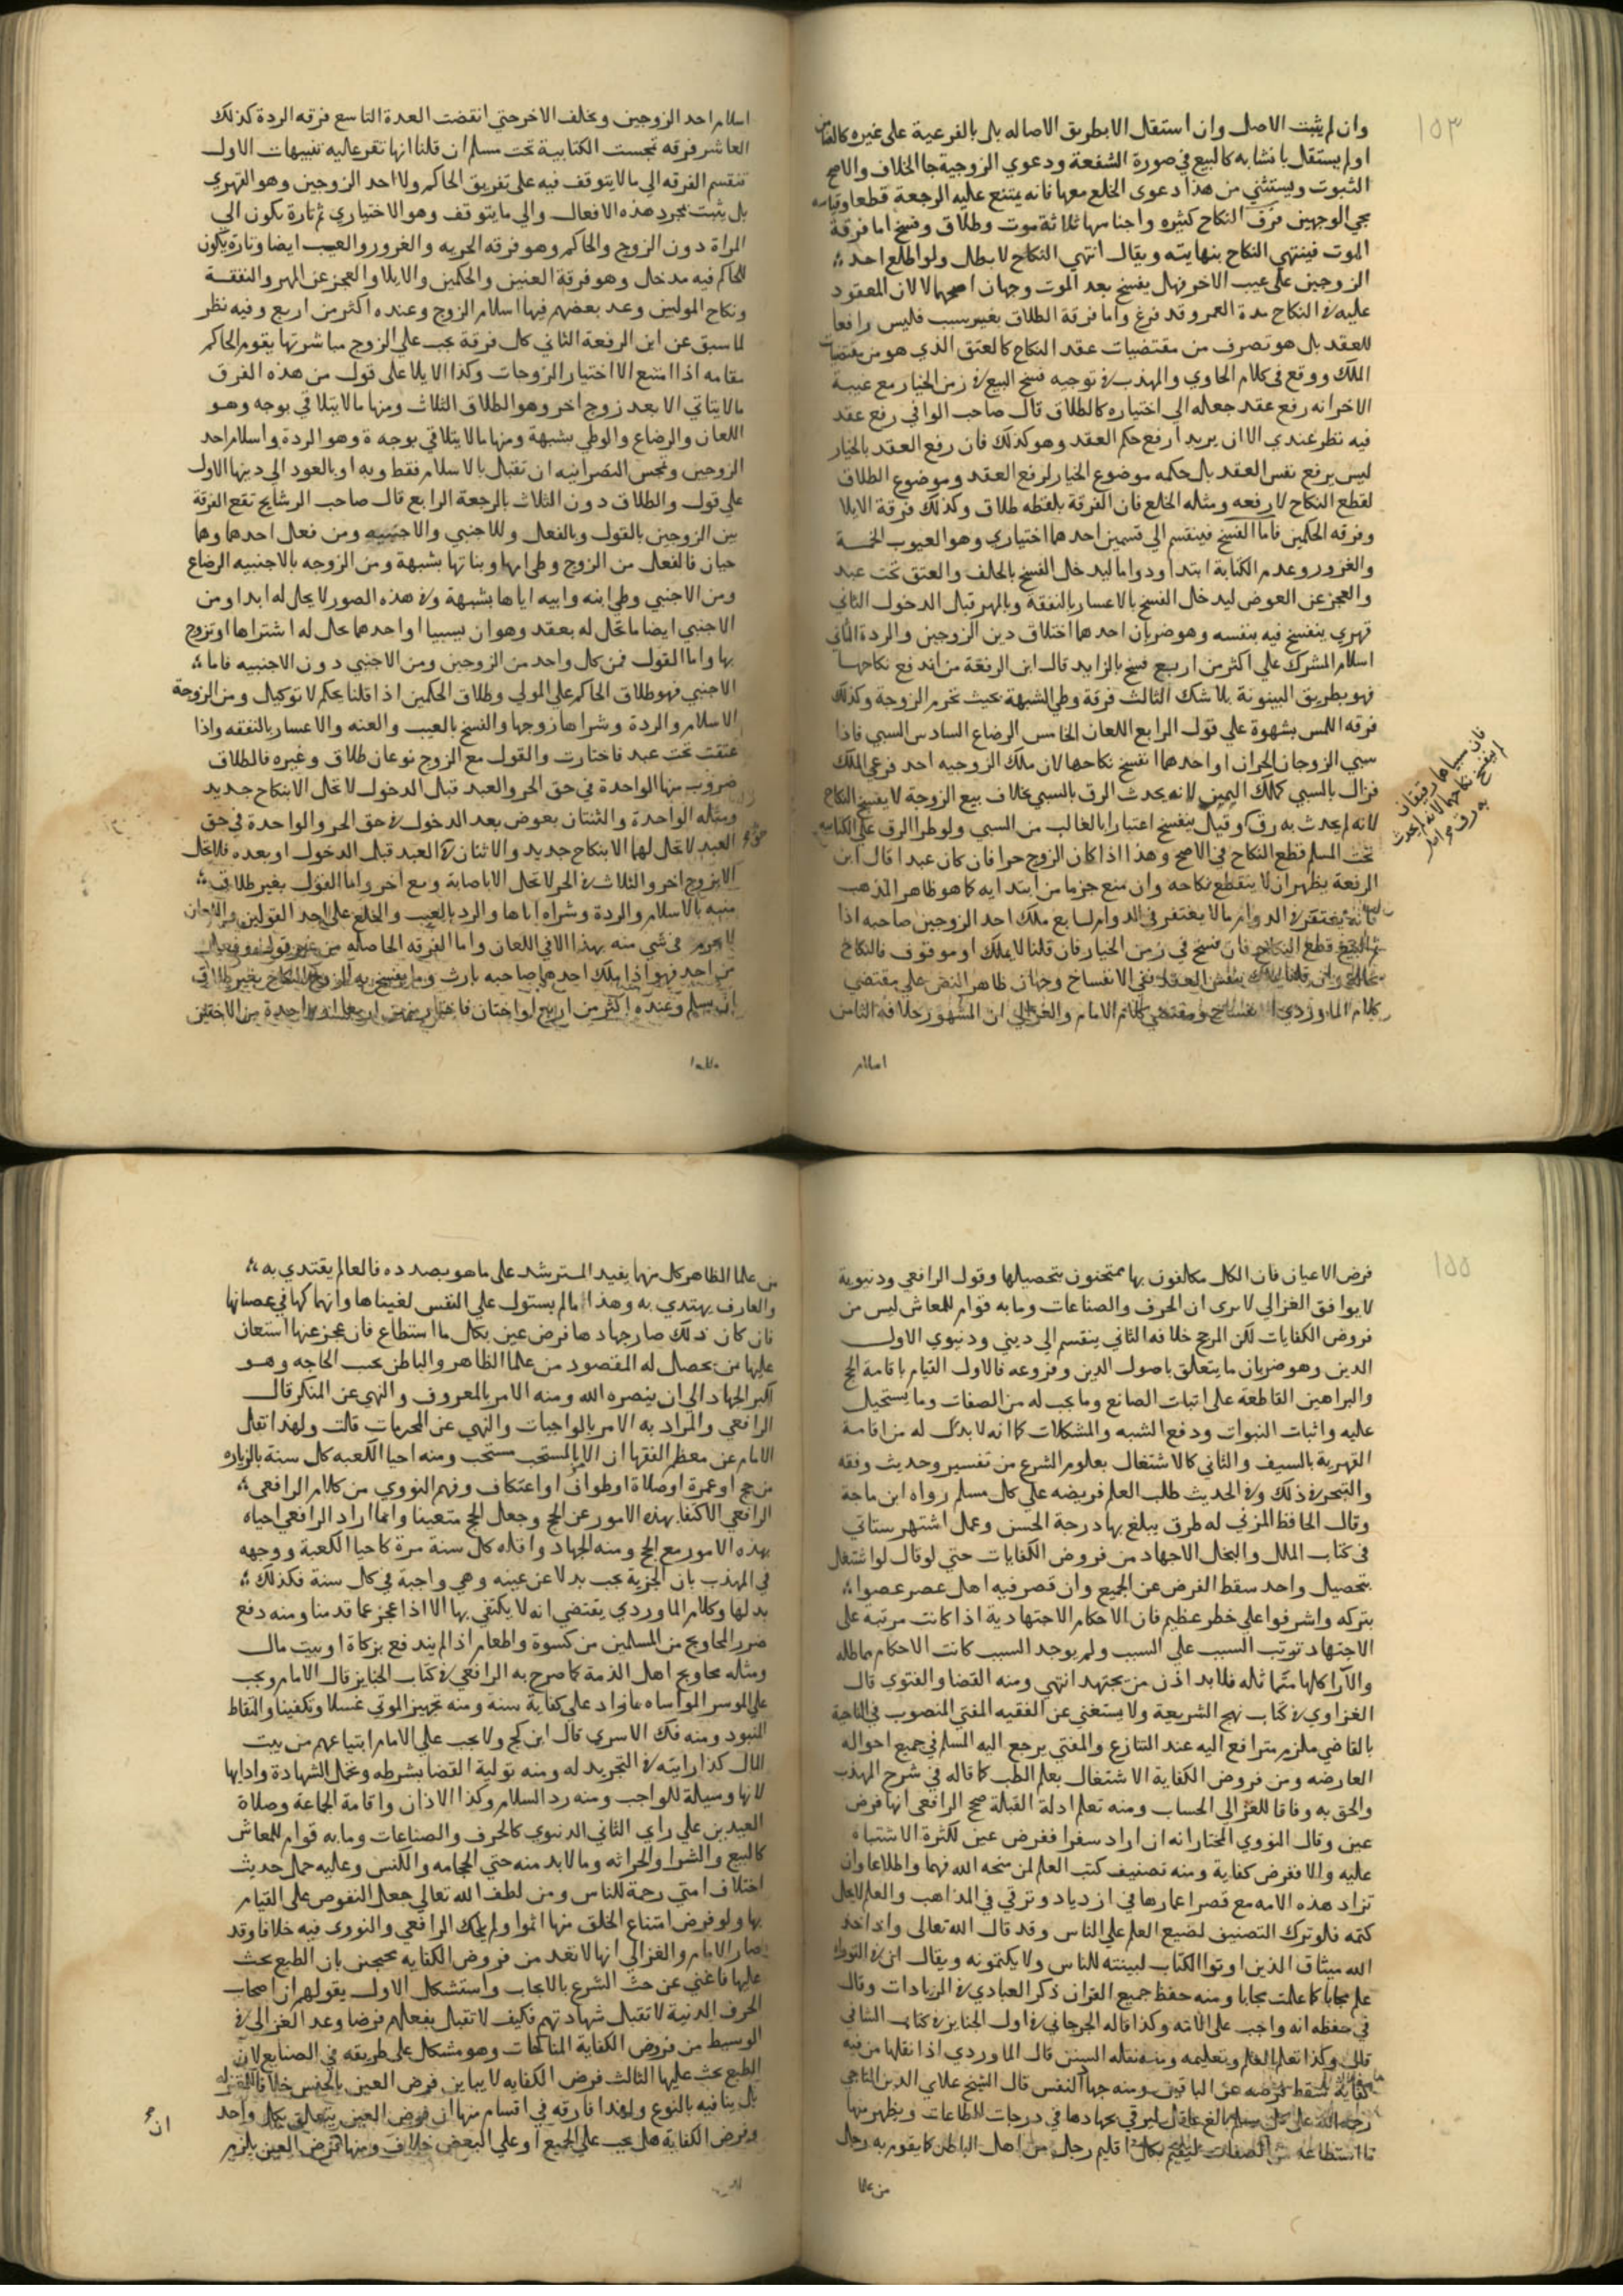 ١٥٣
وان لم يثبت الاصل وان استقل الا بطريق الاصاله بل بالفرعية على غيره
او لم يستقل بانشا به كالبيع في صورة الشفعة ودعوي الزوجية جا الخلاف والاصح
الثبوت ويستثني من هذا دعوى الخلع معها فانه يمتنع عليه الرجعة قطعا
يجي الوجهين فرق النكاح كثيره واجناسها ثلاثة موت وطلاق وفسخ اما فرقة
الموت فينتهي النكاح بنهايته ويقال انتهي النكاح لا بطل ولو اطلع احد
الزوجين على عيب الاخر فهل يفسخ بعد الموت وجهان اصحهما لا لان المعقود
عليه في النكاح مدة العمر وقد فرغ واما فرقة الطلاق بغير سبب فليس رافعا
للعقد بل هو تصرف من مقتضيات عقد النكاح كالعتق الذي هو من مقتضيات
الملك ووقع في كلام الحاوي والمهذب في توجيه فسخ البيع في زمن الخيار مع غيبة
الاخر انه رفع عقد جعله الى اختياره كالطلاق قال صاحب الوافي رفع عقد
فيه نظر عندي الا ان يريد ارفع حكم العقد وهو كذلك فان رفع العقد بالخيار
ليس يرفع نفس العقد بل حكمه موضوع الخيار لرفع العقد وموضوع الطلاق
لقطع النكاح لا رفعه ومثله الخلع فان الفرقة بلفظه طلاق وكذلك فرقة الايلا
وفرقه الحكمين فاما الفسخ فينقسم الي قسمين احدهما اختياري وهو العيوب الخمسة
والغرور وعدم الكتابة ابتدا ودواما ليدخل الفسخ بالحلف والعتق تحت عبد
والعجز عن العوض ليدخل الفسخ بالاعسار بالنفقة وبالمهر قبل الدخول الثاني
قهري ينفسخ فيه بنفسه وهو ضربان احدهما اختلاف دين الزوجين والردة الثاني
اسلام المشرك علي اكثر من اربع فسخ بالزايد قال ابن الرفعة من اندفع نكاحها
فهو بطريق البينونة بلا شك الثالث فرقة وطي الشبهة بحيث تحرم الزوجة وكذلك
فرقه اللمس بشهوة علي قول الرابع اللعان الخامس الرضاع السادس السبي فاذا
سبي الزوجان الحران او احدهما انفسخ نكاحها لان ملك الزوجيه احد فرعي الملك
فزال بالسبي كملك اليمين لانه يحدث الرق بالسبي بخلاف بيع الزوجة لا يفسخ النكاح
لانه لم يحدث به رق وقيل ينفسخ اعتبارا بالغالب من السبي ولو طرا الرق على الكتابيه
تحت المسلم قطع النكاح في الاصح وهذا اذا كان الزوج حرا فان كان عبدا قال ابن
الرفعة يظهر ان لا ينقطع نكاحه وان منع جزما من ابتدايه كما هو ظاهر المذهب
فانه يغتفر في الدوام ما لا يغتفر في الدوام السابع ملك احد الزوجين صاحبه اذا
قطع النكاح فان فسخ في زمن الخيار فان قلنا لا يملك او موقوف فالنكاح
بنفس العقد ففي الانفساخ وجهان ظاهر النص علي مقتضي
كلام الماوردي ومقتضي كلام الامام والغزالي ان المشهور خلافه الثامن
اسلام
فان سبيا وهما رقيقان
لم ينفسخ نكاحهما لانه لم يحدث
به رق
اسلام احد الزوجين وتخلف الاخر حتي انقضت العدة التاسع فرقه الردة كذلك
العاشر فرقه تمجست الكتابية تحت مسلم ان قلنا انها تقر عليه تنبيهات الاول
تنقسم الفرقه الي ما لا يتوقف فيه على تفريق الحاكم ولا احد الزوجين وهو القهري
بل يثبت بمجرد هذه الافعال والي ما يتوقف وهو الاختياري ثم تارة يكون الي
المراة دون الزوج والحاكم وهو فرقه الحريه والغرور والعيب ايضا وتارة يكون
للحاكم فيه مدخل وهو فرقة العنين والحكمين والايلا والعجز عن المهر والنفقة
ونكاح الوليين وعد بعضهم فيها اسلام الزوج وعنده اكثر من اربع وفيه نظر
لما سبق عن ابن الرفعة الثاني كل فرقة يجب علي الزوج مباشرتها يقوم الحاكم
مقامه اذا امتنع الا اختيار الزوجات وكذا الايلا على قول من هذه الفرق
ما لا يتاتي الا بعد زوج اخر وهو الطلاق الثلاث ومنها ما لا يتلافي بوجه وهو
اللعان والرضاع والوطي بشبهة ومنها ما لا يتلافي بوجه وهو الردة واسلام احد
الزوجين وتمجس النصرانيه ان تقبل بالاسلام فقط وبه او بالعود الي دينها الاول
علي قول والطلاق دون الثلاث بالرجعة الرابع قال صاحب تقع الفرقة
بين الزوجين بالقول وبالفعل وللاجنبي والاجنبيه ومن فعل احدهما وهما
حيان فالفعل من الزوج وطي امها وبناتها بشبهة ومن الزوجه بالاجنبيه الرضاع
ومن الاجنبي وطي ابنه وابيه اياها بشبهة وفي هذه الصور لا يحل له ابدا ومن
الاجنبي ايضا ما تحل له بعقد وهو ان يسبيا او احدهما تحل له اشتراها او تزوج
بها واما القول فمن كل واحد من الزوجين ومن الاجنبي دون الاجنبيه فاما
الاجنبي فهو طلاق الحاكم على المولي وطلاق الحكمين اذا قلنا بحكم لا توكيل ومن الزوجة
الاسلام والردة وشراها زوجها والفسخ بالعيب والعنه والاعسار بالنفقه واذا
عتقت تحت عبد فاختارت والقول مع الزوج نوعان طلاق وغيره فالطلاق
ضروب منها الواحدة في حق الحر والعبد قبل الدخول لا تحل الا بنكاح جديد
ومثله الواحدة والثنتان بعوض بعد الدخول في حق الحر والواحدة في حق
العبد لا تحل لهما الا بنكاح جديد والاثنتان في العبد قبل الدخول او بعده فلا تحل
الا بزوج اخر والثلاث في الحر لا تحل الا باصابة زوج اخر واما القول بغير طلاق
منه بالاسلام والردة وشراه اياها والرد بالعيب والخلع على احد القولين
في شي منه بهذا الا في اللعان واما الفرقه الحاصله من غير قول وفعل
من احد فهو اذا ملك احدهما صاحبه بارث وما ينفسخ به النكاح بغير طلاق
ان يسلم وعنده اكثر من اربع او اختان فاختار منهن اربعا او واحدة من الاختين
١٥٥
فرض الاعيان فان الكل مكلفون بها ممتحنون بتحصيلها وقول الرافعي ودنيوية
لا يوافق الغزالي لا يرى ان الحرف والصناعات وما به قوام للمعاش ليس من
فروض الكفايات لكن المرجح خلافه الثاني ينقسم الي ديني ودنيوي الاول
الدين وهو ضربان ما يتعلق باصول الدين وفروعه فالاول القيام باقامة الحج
والبراهين القاطعة على اثبات الصانع وما يجب له من الصفات وما يستحيل
عليه واثبات النبوات ودفع الشبه والمشكلات كما انه لا بد له من اقامة
القهرية بالسيف والثاني كالاشتغال بعلوم الشرع من تفسير وحديث وفقه
والتبحر في ذلك وفي الحديث طلب العلم فريضه علي كل مسلم رواه ابن ماجة
وقال الحافظ المزني له طرق يبلغ بها درجة الحسن وعمل الشهرستاني
في كتاب الملل والنحل الاجهاد من فروض الكفايات حتي لو قال لو اشتغل
بتحصيل واحد سقط الفرض عن الجميع وان قصر فيه اهل عصر عصوا
بتركه واشرفوا علي خطر عظيم فان الاحكام الاجتهادية اذا كانت مرتبة على
الاجتهاد ترتب المسبب علي السبب ولم يوجد السبب كانت الاحكام عاطله
والآرا كلها متماثله فلا بد اذن من مجتهد انتهي ومنه القضا والفتوي قال
الغزاوي في كتاب نهج الشريعة ولا يستغني عن الفقيه المفتي المنصوب في الناحية
بالقاضي ملزم مترافع اليه عند التنازع والمفتي يرجع اليه المسلم في جميع احواله
العارضه ومن فروض الكفاية الاشتغال بعلم الطب كما قاله في شرح المهذب
والحق به وفاقا للغزالي الحساب ومنه تعلم ادلة القبلة صح الرافعي انها فرض
عين وقال النووي المختار انه ان اراد سفرا ففرض عين لكثرة الاشتباه
عليه والا ففرض كفاية ومنه تصنيف كتب العلم لمن منحه الله فهما واطلاعا ولن
تزاد هذه الامه مع قصر اعمارها في ازدياد وترقي في المذاهب والعلم لا يحل
كتمه فلو ترك التصنيف لضيع العلم علي الناس وقد قال الله تعالى واذ اخذ
الله ميثاق الذين اوتوا الكتاب لتبيننه للناس ولا يكتمونه ويقال ان في التوراة
علم مجانا كما علمت مجانا ومنه حفظ جميع القران ذكر العبادي في الزيادات وقال
في حفظه انه واجب على الامه وكذا قاله الجرجاني في اول الجنايز في كتاب الشافي
قال وكذا تعلم العلم وتعليمه ومنه نقله السنن قال الماوردي اذا نقلها من فيه
كفاية سقط فرضه عن الباقين ومنه جهاد النفس قال الشيخ علاي الدين الباجي
رحمه الله على كل مسلم بالغ عاقل ليرقي بجهادها في درجات الطاعات ويظهر منها
ما استطاعه من الصفات ليقيم بكل اقليم رجل من اهل الباطن كما يقوم به رجل
من علما
من علما الظاهر كل منهما يفيد المسترشد على ما هو بصدده فالعالم يقتدي به
والعارف يهتدي به وهذا ما لم يستول علي النفس لغيناها وانهماكها في عصيانها
فان كان ذلك صار جهادها فرض عين بكل ما استطاع فان عجز عنها استعان
عليها من يحصل له المقصود من علما الظاهر والباطن بحسب الحاجه وهو
اكبر الجهاد الي ان ينصره الله ومنه الامر بالمعروف والنهي عن المنكر قال
الرافعي والمراد به الامر بالواجبات والنهي عن المحرمات قالت ولهذا نقل
الامام عن معظم الفقها ان الامر بالمستحب مستحب ومنه احيا الكعبه كل سنة بالزياره
من حج او عمرة او صلاة او طواف او اعتكاف وفهم النووي من كلام الرافعي
الرافعي الاكتفا بهذه الامور عن الحج وجعل الحج متعينا وانما اراد الرافعي احياه
بهذه الامور مع الحج ومنه الجهاد واقله كل سنة مرة كاحيا الكعبة ووجهه
في المهذب بان الجزية تجب بدلا عن عينه وهي واجبة في كل سنة فكذلك
بدلها وكلام الماوردي يقتضي انه لا يكتفي بها الا اذا عجز عما قدمنا ومنه دفع
ضرر المحاويج من المسلمين من كسوة واطعام اذا لم يندفع بزكاة او بيت مال
ومثله محاويج اهل الذمة كما صرح به الرافعي في كتاب الجنايز قال الامام ويجب
علي الموسر المواساه بما زاد على كفاية سنة ومنه تجهيز الموتي غسلا وتكفينا والتقاط
المنبوذ ومنه فك الاسري قال ابن كج ولا يجب علي الامام ابتياعهم من بيت
المال كذا رايته في التجريد له ومنه تولية القضا بشرطه وتحمل الشهادة وادايها
لانها وسيلة للواجب ومنه رد السلام وكذا الاذان واقامة الجماعة وصلاة
العيدين علي راي الثاني الدنيوي كالحرف والصناعات وما به قوام للمعاش
كالبيع والشرا والحراثه وما لا بد منه حتي الحجامه والكنس وعليه حمل حديث
اختلاف امتي رحمة للناس ومن لطف الله تعالى جعل النفوس على القيام
بها ولو فرض امتناع الخلق منها اثموا ولم يحك الرافعي والنووي فيه خلافا وقد
صار الامام والغزالي انها لا تعد من فروض الكفايه محتجين بان الطبع يحث
عليها فاغني عن حث الشرع بالايجاب واستشكل الاول بقولهم ان اصحاب
الحرف الدنية لا تقبل شهادتهم فكيف لا تقبل بفعلهم فرضا وعد الغزالي في
الوسيط من فروض الكفاية المناكحات وهو مشكل على طريقه في الصنايع لان
الطبع يحث عليها الثالث فرض الكفايه لا يباين فرض العين بالجنس خلافا للمعتزله
بل ينافيه بالنوع ولهذا فارقه في اقسام منها ان فرض العين يتعلق بكل واحد
وفرض الكفاية هل يجب علي الجميع او علي البعض خلاف ومنها فرض العين يلزم